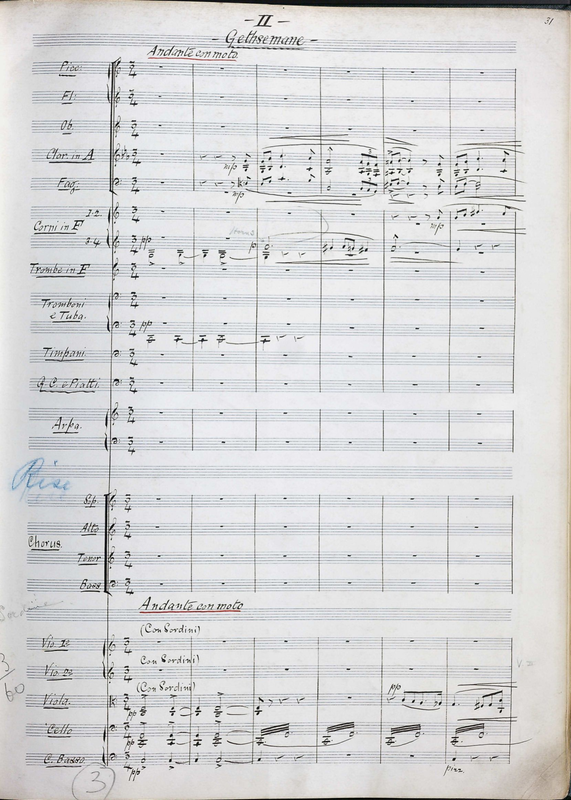 - II -
31
- Gethsemane -
Andante con moto.
Picc:
Fl:
Ob.
Clar. in A
mp
Fag.
mp
1.2.
Corni in F
mp
3.4.
pp
p
Trombe in F
Tromboni
e Tuba.
pp
Timpani.
G. C. e Piatti.
Arpa.
Rise
Sop.
Alto
Chorus.
Tenor
Bass
Andante con moto
Sordini
(Con Sordini)
Vio. 1e
Con Sordini)
Vio. 2e
3
60
(Con Sordini)
pp
Viola.
pp
Cello
pp
C. Basso.
pp
pizz.
3